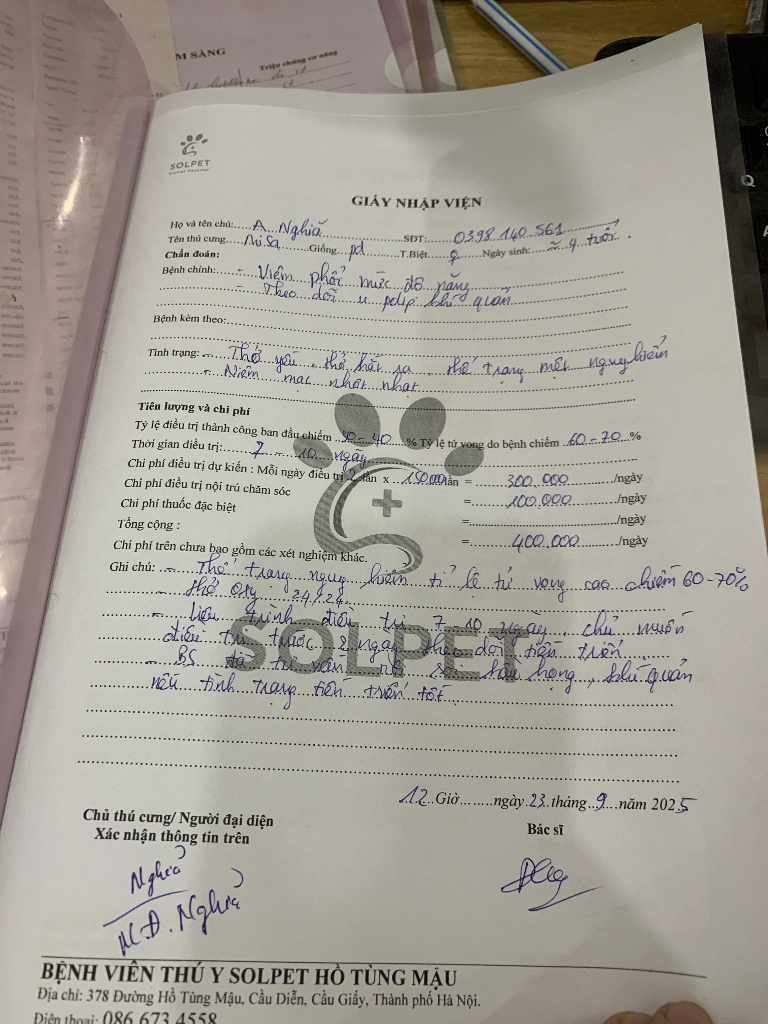 M SÀNG
Triệu chứng cơ năng
SOLPET
Animal Hospital
GIẤY NHẬP VIỆN
Họ và tên chủ: A. Nghĩa SĐT: 0398 140 561
Tên thú cưng Misa Giống pd T.Biệt ♀ Ngày sinh: ≈ 4 tuổi.
Chẩn đoán:
Bệnh chính: - Viêm phổi mức độ nặng
- Theo dõi u polip khí quản
Bệnh kèm theo:
Tình trạng: - Thở yếu, thở hắt ra, thể trạng mệt nguy hiểm
- Niêm mạc nhợt nhạt
Tiên lượng và chi phí
Tỷ lệ điều trị thành công ban đầu chiếm 30-40 % Tỷ lệ tử vong do bệnh chiếm 60-70 %
Thời gian điều trị: 7 - 10 ngày
Chi phí điều trị dự kiến : Mỗi ngày điều trị 2 lần x 150.000/lần = 300.000 /ngày
Chi phí điều trị nội trú chăm sóc = 100.000 /ngày
Chi phí thuốc đặc biệt = /ngày
Tổng cộng : = 400.000 /ngày
Chi phí trên chưa bao gồm các xét nghiệm khác.
Ghi chú: - Thể trạng nguy hiểm tỉ lệ tử vong cao chiếm 60-70%
- thở oxy 24/24
- Liệu trình điều trị 7-10 ngày, chủ muốn
điều trị trước 2 ngày theo dõi tiến triển
- BS đã tư vấn soi hầu họng, khí quản
nếu tình trạng tiến triển tốt
12 Giờ ngày 23 tháng 9 năm 2025
Chủ thú cưng/ Người đại diện
Xác nhận thông tin trên
Bác sĩ
Nghĩa
N.Đ. Nghĩa
SOLPET
BỆNH VIÊN THÚ Y SOLPET HỒ TÙNG MẬU
Địa chỉ: 378 Đường Hồ Tùng Mậu, Cầu Diễn, Cầu Giấy, Thành phố Hà Nội.
Điện thoại: 086 673 4558
Q